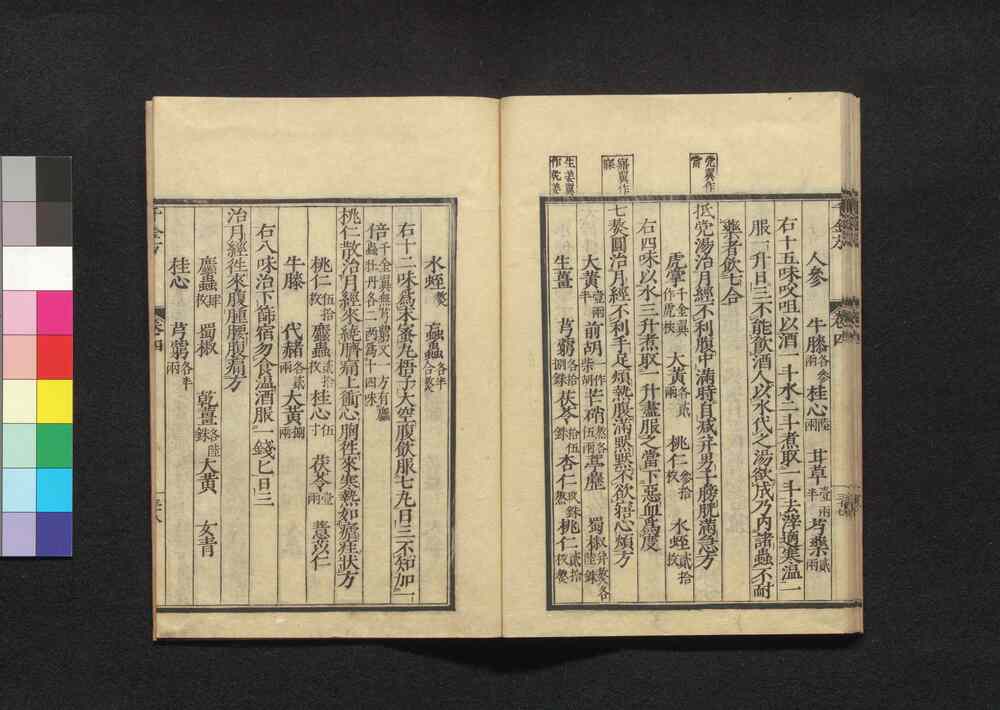 人參　牛膝各參兩　桂心　甘草壹兩半　芍藥貳兩
右十五味㕮咀以酒一斗水二斗煮取一斗去滓適寒溫一
服一升日三不能飲酒人以水代之湯欲成乃内諸蟲不耐
藥者飲七合
抵党湯治月經不利腹中滿時自減并男子膀胱滿急方
虎掌千金翼作虎杖　大黄各貳兩　桃仁參拾枚　水蛭貳拾枚
右四味以水三升煮取一升盡服之當下惡血爲度
七熬圓治月經不利手足煩熱腹滿黙黙不欲寤心煩方
大黄壹兩半　前胡一作柴胡　芒硝熬各伍兩　葶藶　蜀椒并熬各陸銖
生薑　芎藭各拾捌銖　茯苓拾伍銖　杏仁玖銖熬　桃仁貳拾枚熬
水蛭熬　蝱蟲各半合熬
右十二味爲末蜜丸梧子大空腹飲服七丸日三不知加一
倍千金翼無芎藭又一方有䗪蟲牡丹各二兩爲十四味
桃仁散治月經來絶臍痛上衝心胸往來寒熱如瘧疰狀方
桃仁伍拾枚　䗪蟲貳拾枚　桂心伍寸　茯苓壹兩　薏苡仁
牛膝　代赭各貳兩　大黄捌兩
右八味治下篩宿勿食溫酒服一錢匕日三
治月經往來腹腫腰腹痛方
䗪蟲肆枚　蜀椒　乾薑各陸銖　大黄　女青
桂心　芎藭各半兩
党翼作當
寤翼作寐
千金方
卷四
卷四